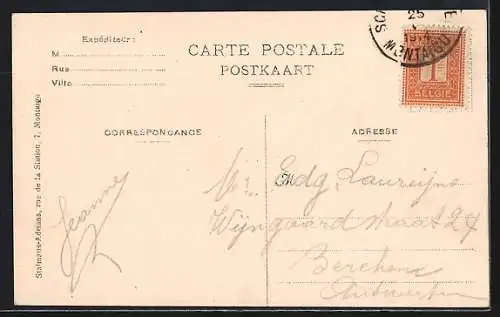 Expéditeur:
M
Rue
Ville
CARTE POSTALE
POSTKAART
25
MONTAIGU
1
BELGIE
CORRESPONDANCE
ADRESSE
Stalmans-Adriaes, rue de la Station, 7, Montaigu
Jeanne
M Edg. Laureijns
Wijngaardstraat 27
Berchem
Antwerpen